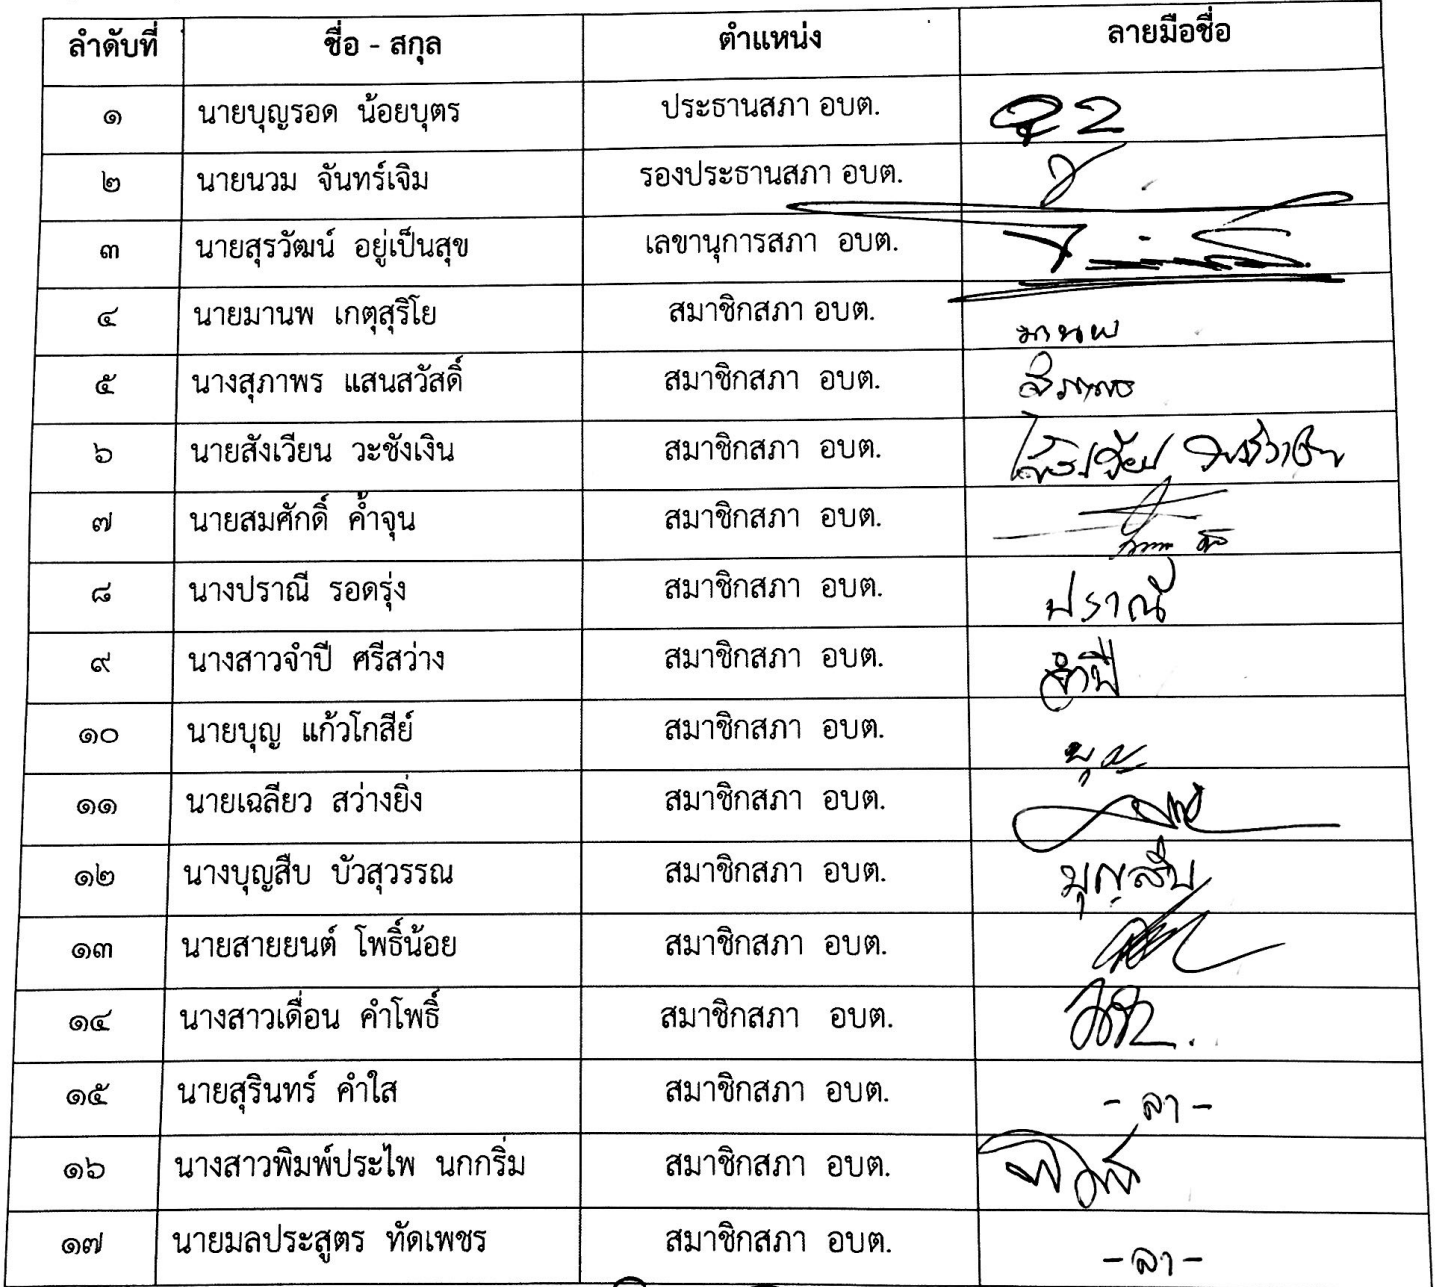 ลำดับที่ ชื่อ - สกุล ตำแหน่ง ลายมือชื่อ
๑ นายบุญรอด น้อยบุตร ประธานสภา อบต.
๒ นายนวม จันทร์เจิม รองประธานสภา อบต.
๓ นายสุรวัฒน์ อยู่เป็นสุข เลขานุการสภา อบต.
๔ นายมานพ เกตุสุริโย สมาชิกสภา อบต. มานพ
๕ นางสุภาพร แสนสวัสดิ์ สมาชิกสภา อบต. สุภาพร
๖ นายสังเวียน วะชังเงิน สมาชิกสภา อบต.
๗ นายสมศักดิ์ ค้ำจุน สมาชิกสภา อบต.
๘ นางปราณี รอดรุ่ง สมาชิกสภา อบต. ปราณี
๙ นางสาวจำปี ศรีสว่าง สมาชิกสภา อบต. จำปี
๑๐ นายบุญ แก้วโกสีย์ สมาชิกสภา อบต. บุญ
๑๑ นายเฉลียว สว่างยิ่ง สมาชิกสภา อบต.
๑๒ นางบุญสืบ บัวสุวรรณ สมาชิกสภา อบต. บุญสืบ
๑๓ นายสายยนต์ โพธิ์น้อย สมาชิกสภา อบต.
๑๔ นางสาวเดื่อน คำโพธิ์ สมาชิกสภา อบต.
๑๕ นายสุรินทร์ คำใส สมาชิกสภา อบต. - ลา -
๑๖ นางสาวพิมพ์ประไพ นกกริ่ม สมาชิกสภา อบต.
๑๗ นายมลประสูตร ทัดเพชร สมาชิกสภา อบต. - ลา -